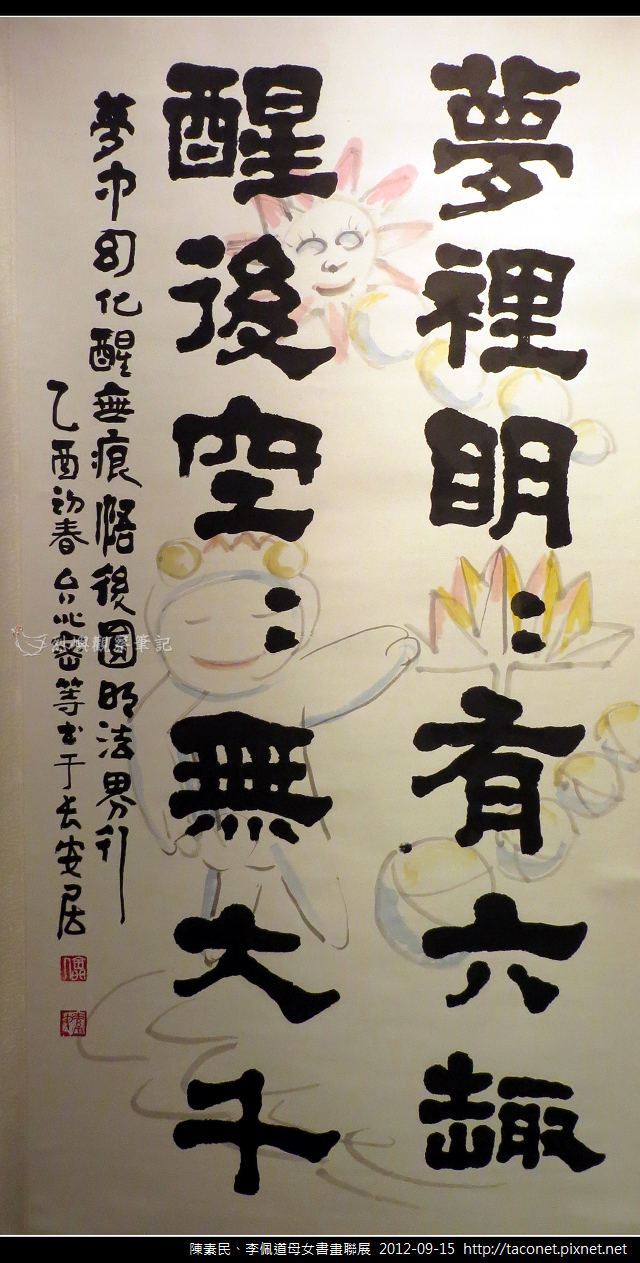 夢裡明：有六趣
醒後空：無大千
夢中幻化醒無痕悟後圓明法界行
乙酉初春台北 等书于長安居
觀察筆記
陳素民、李佩道母女書畫聯展 2012-09-15 http://taconet.pixnet.net